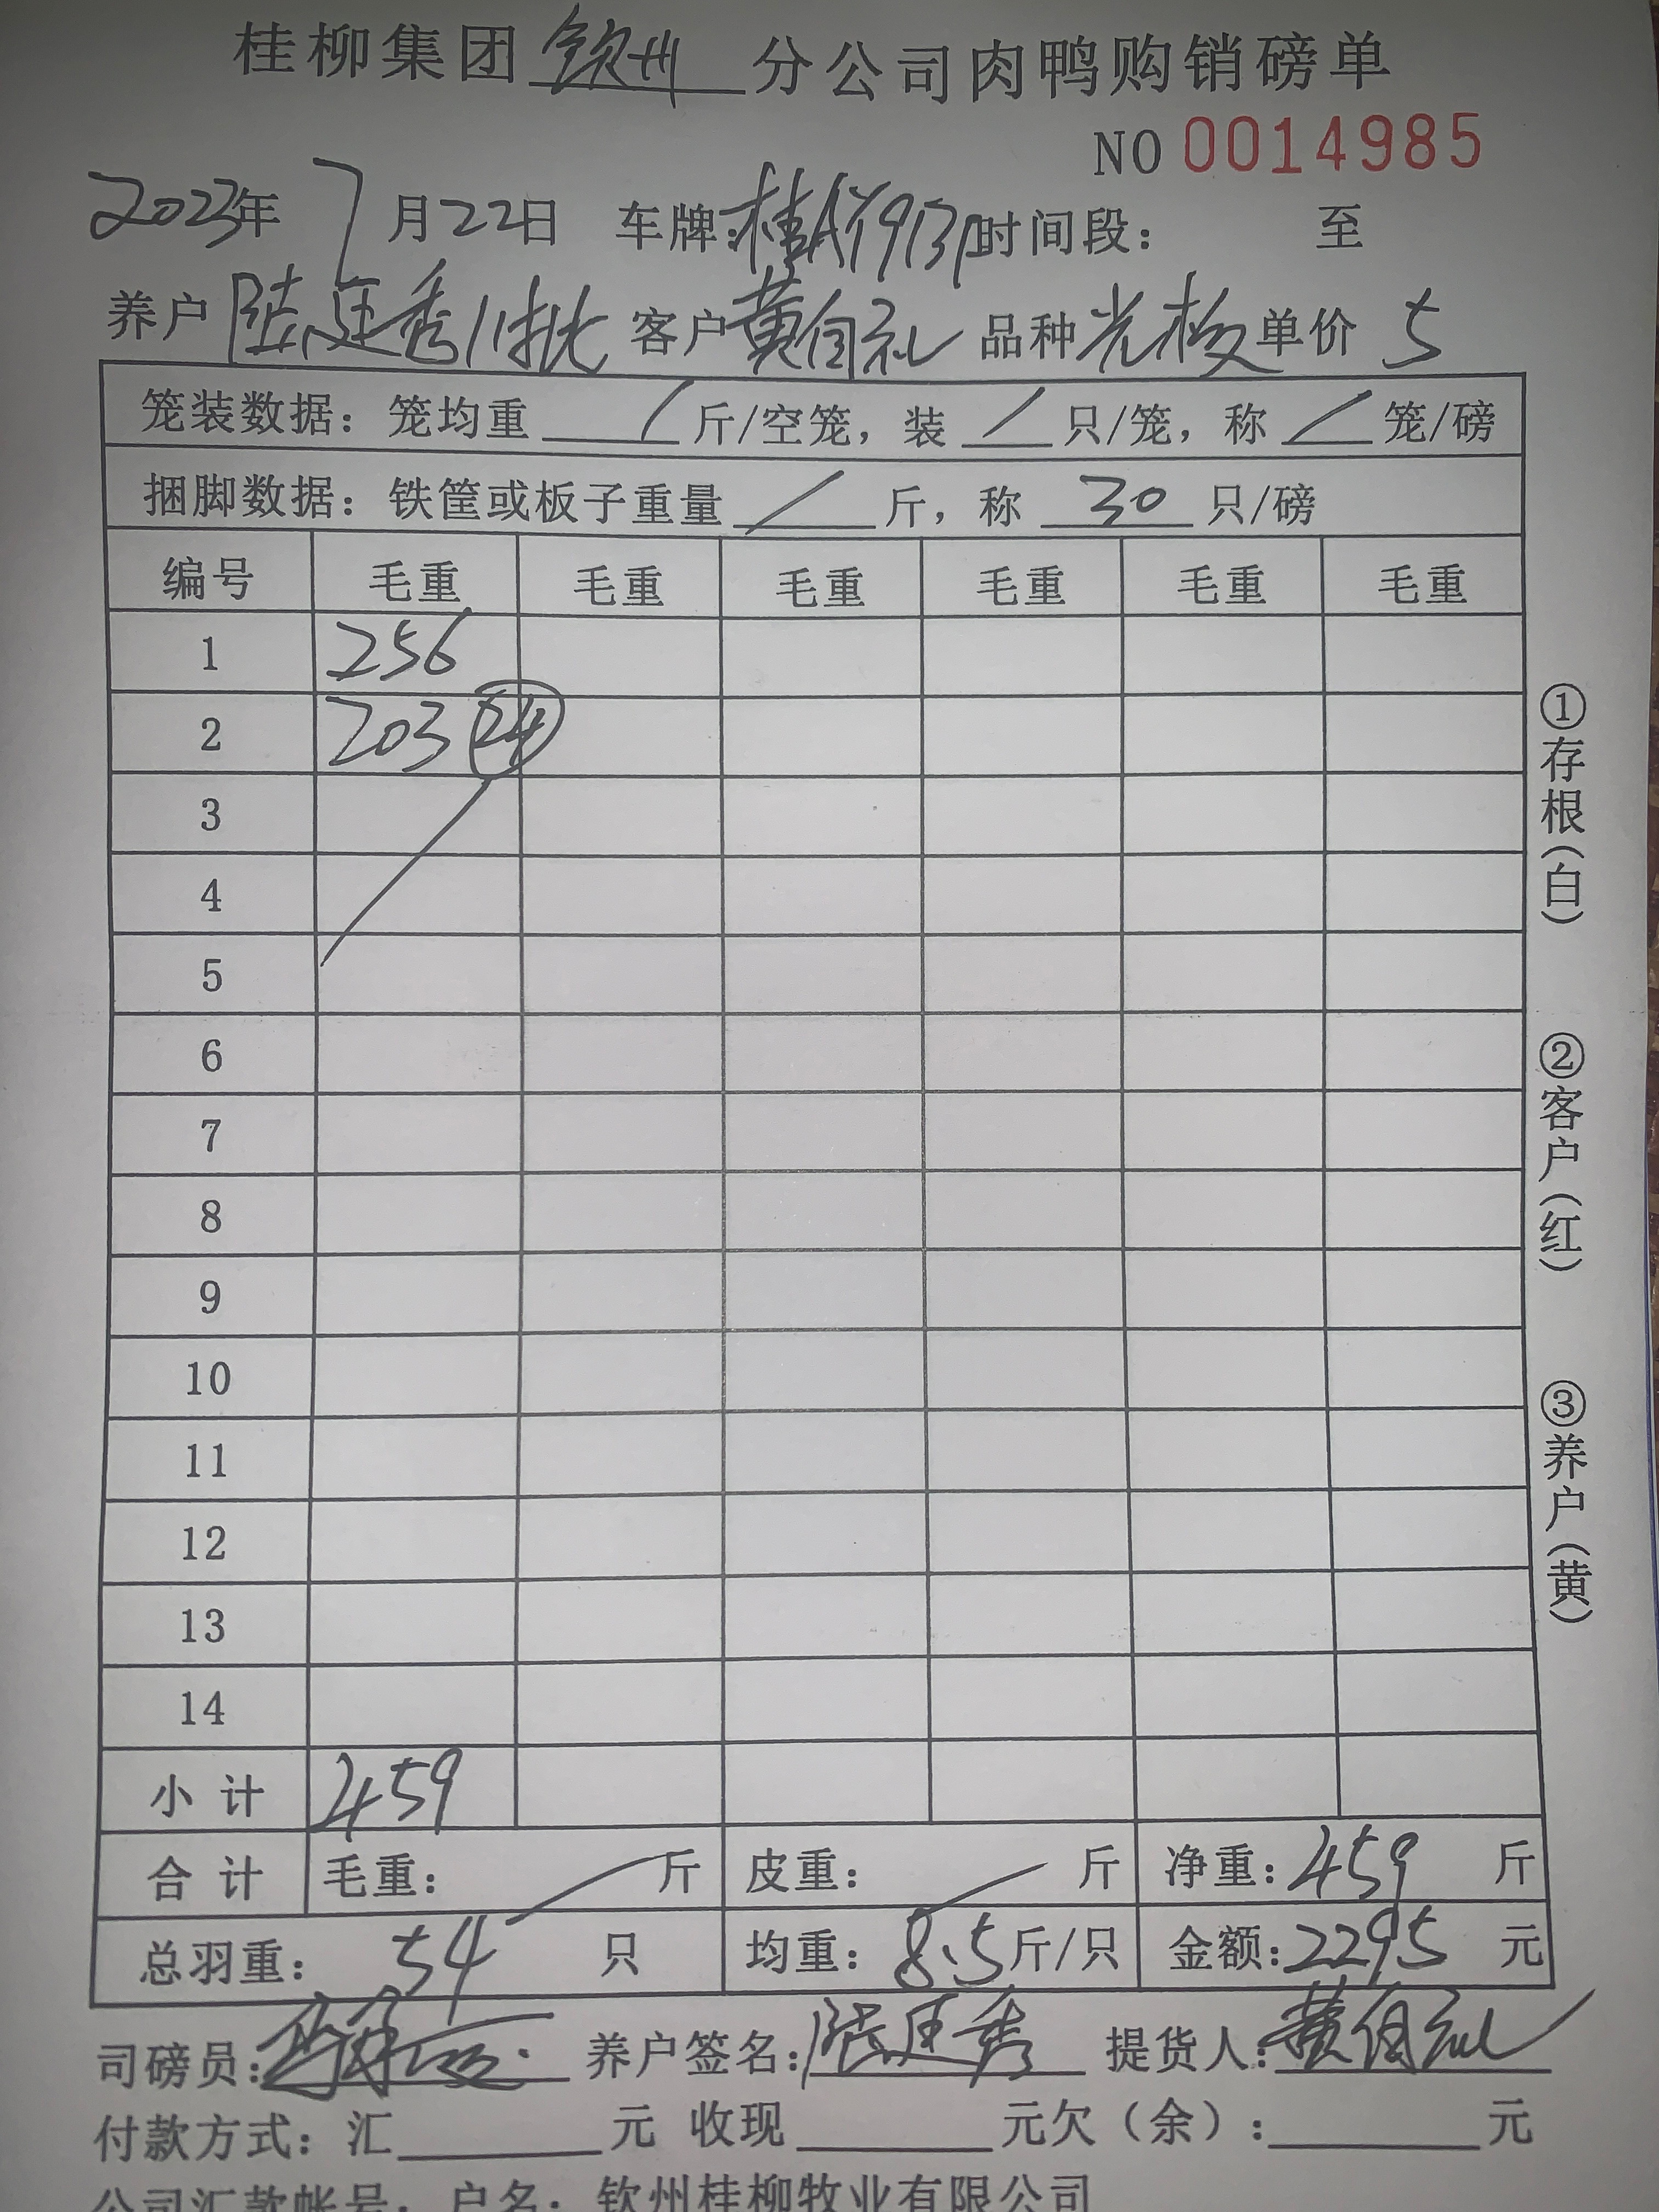 桂柳集团钦州分公司肉鸭购销磅单
NO 0014985
2023年7月22日 车牌: 时间段: 至
养户陆廷秀11批 客户黄自礼 品种光板 单价5
笼装数据: 笼均重/斤/空笼, 装/只/笼, 称/笼/磅
捆脚数据: 铁筐或板子重量/斤, 称30只/磅
编号 毛重 毛重 毛重 毛重 毛重 毛重
1 256
2 203 24
3
4
5
6
7
8
9
10
11
12
13
14
小计 459
合计 毛重: / 斤 皮重: / 斤 净重: 459 斤
总羽重: 54 只 均重: 8.5 斤/只 金额: 2295 元
司磅员: 养户签名: 陆廷秀 提货人: 黄自礼
付款方式: 汇 元 收现 元欠(余): 元
公司汇款帐号: 户名: 钦州桂柳牧业有限公司
①存根(白)
②客户(红)
③养户(黄)